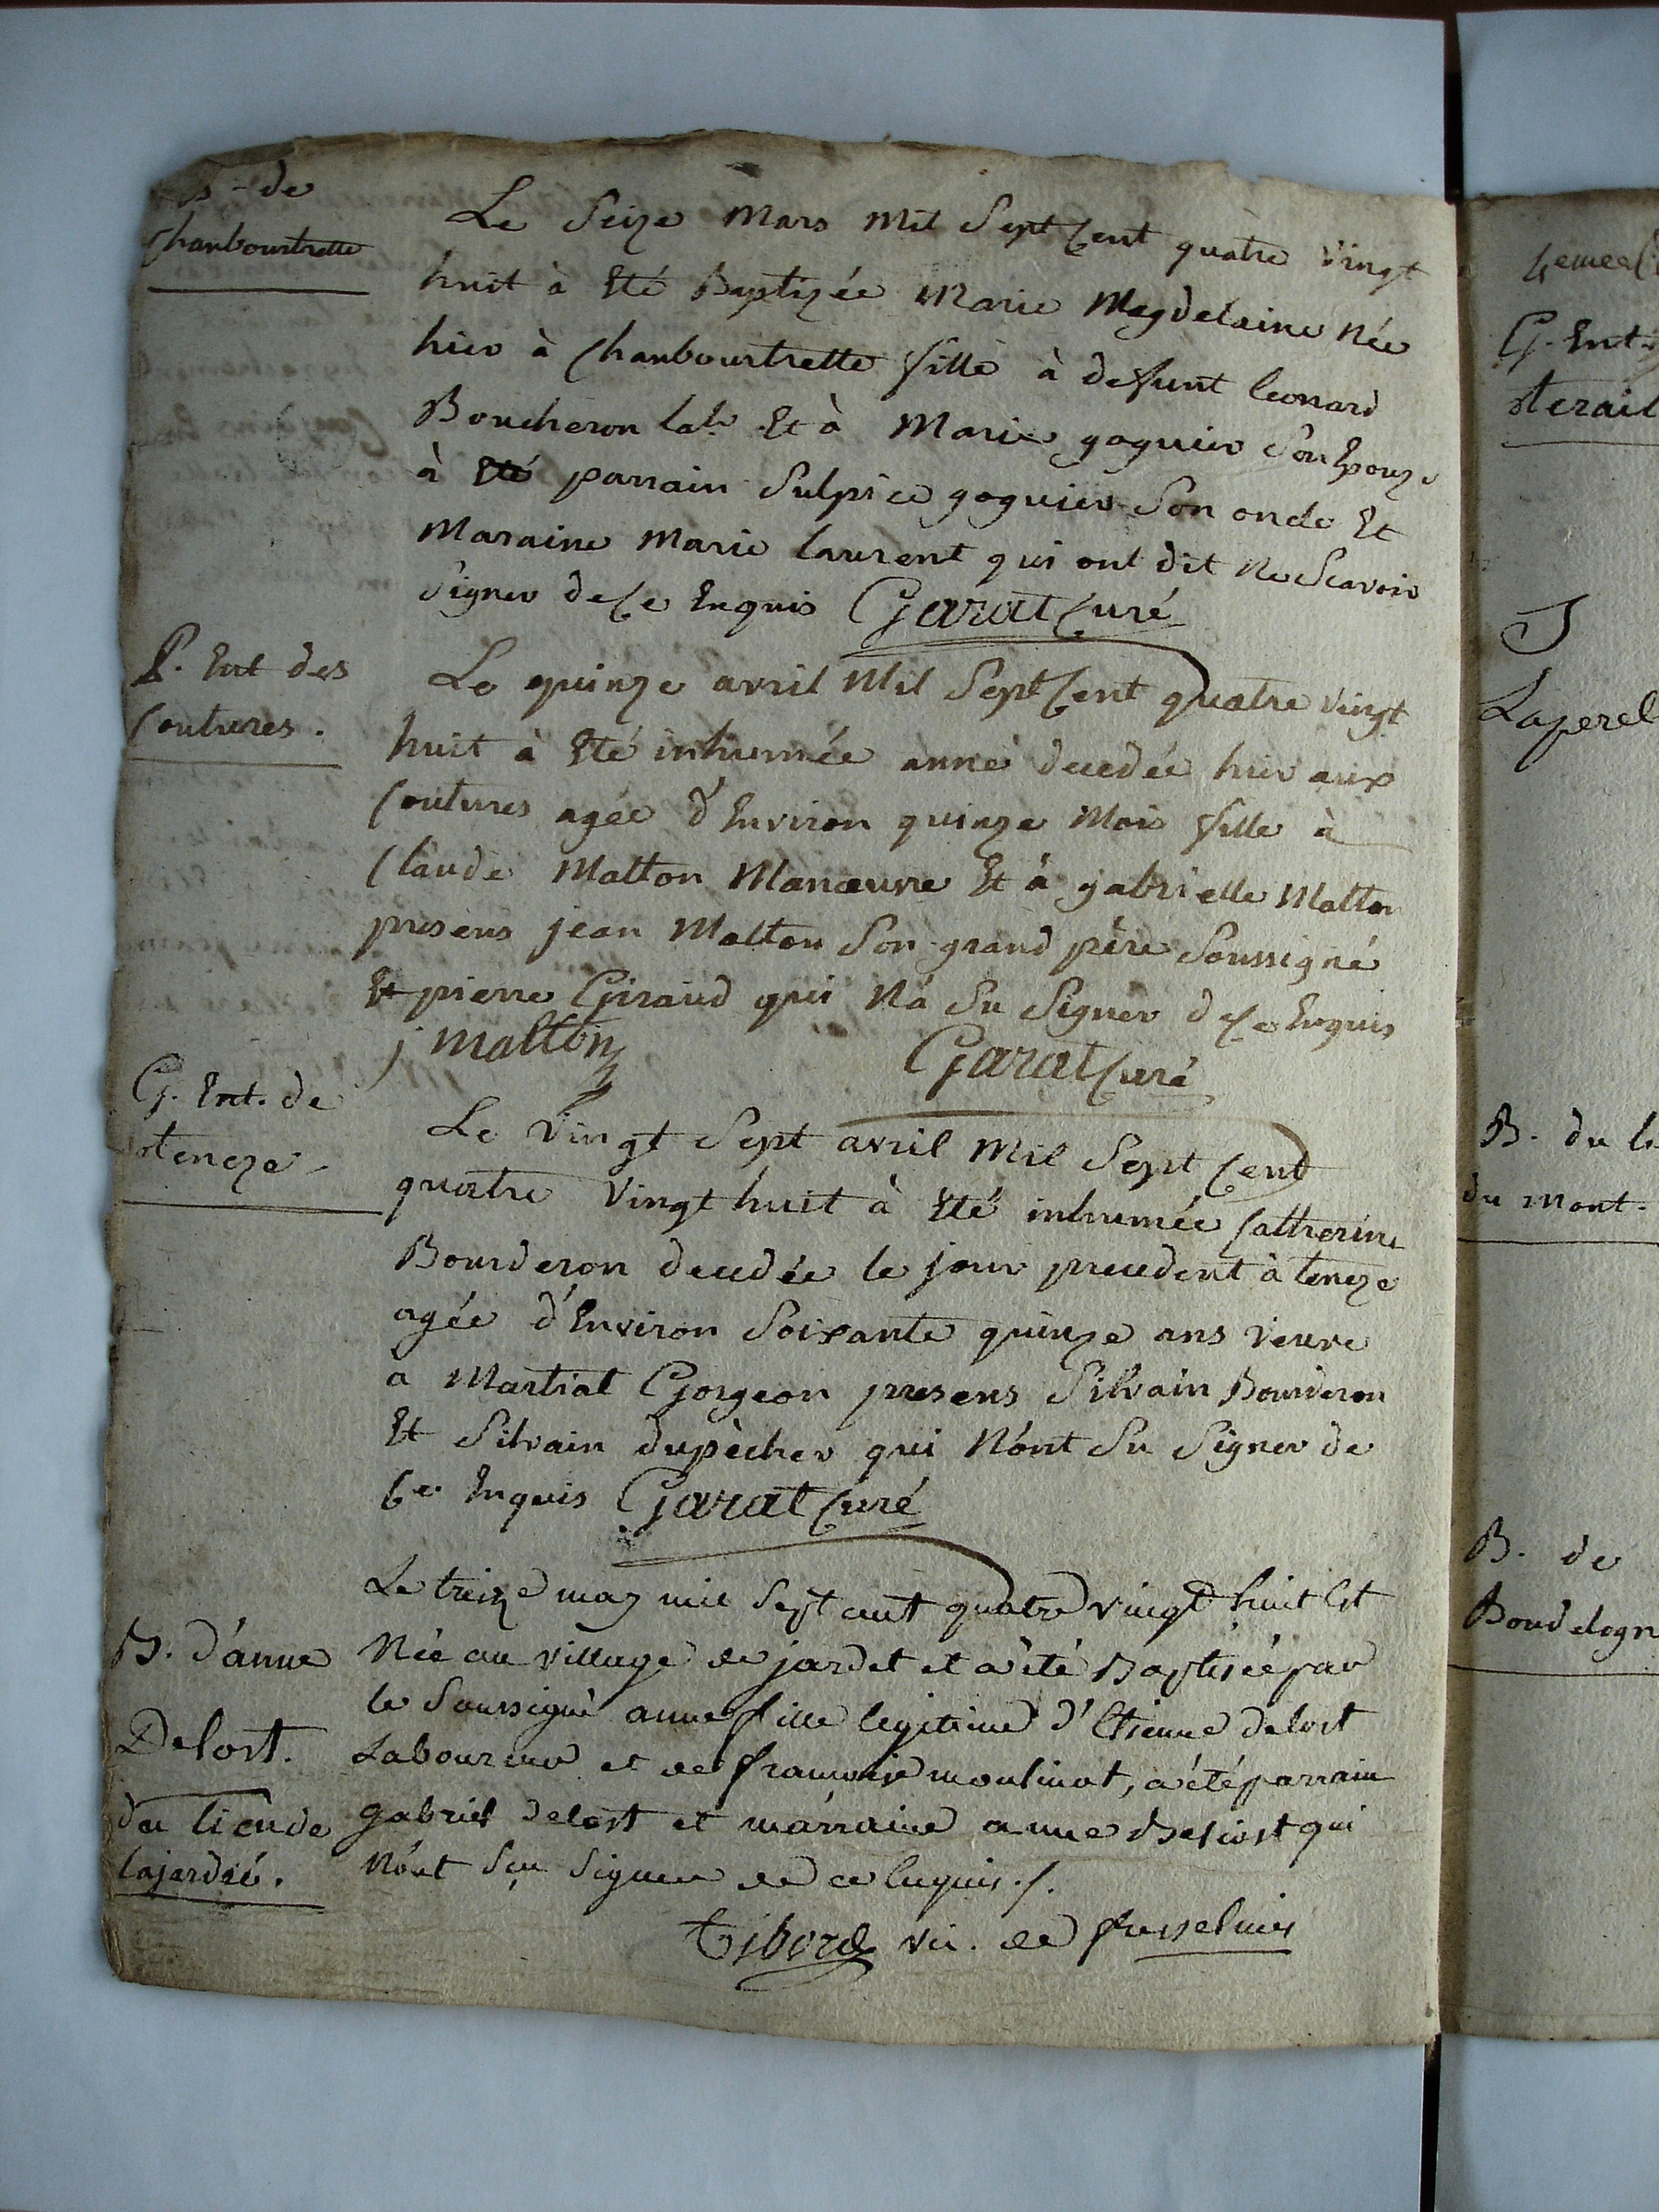 B - de
Chanbourtrette
Le Seize Mars Mil Sept Cent quatre vingt
huit à Eté Baptizée Marie Magdelaine Née
hier à Chanbourtrette fille à defunt leonard
Boucheron labr Et à Marie goguier Son Epouze
à Eté parrain Sulpice goguier Son oncle Et
Maraine Marie laurent qui ont dit Ne Scavoir
Signer de Ce Enquis Garat Curé
P. Ent des
Coutures.
Le quinze avril Mil Sept Cent quatre vingt
huit à Eté inhumée anne decedée hier aux
Coutures agée d'Environ quinze Mois fille à
Claude Malton Manœuvre Et à gabrielle Malton
presens jean Malton Son grand père Soussigné
Et pierre Giraud qui N'a Su Signer de Ce Enquis
j malton Garat Curé
G. Ent. de
teneze
Le vingt Sept avril Mil Sept Cent
quatre vingt huit à Eté inhumée Catherine
Bourderon decedée le jour precedent à teneze
agée d'Environ Soixante quinze ans veuve
a Martial Gorgeon presens Silvain Bourderon
Et Silvain dupècher qui N'ont Su Signer de
Ce Enquis Garat Curé
B. d'anne
Delost.
du lieu de
lajardié.
Le treize may mil Sept cent quatre vingt huit Est
Née au village de jardet et a été Baptisée par
le Soussigné anne fille legitime d'Etienne delost
Laboureur et de francoise moulinot, a été parrain
gabriel delost et marraine anne qui
N'ont Sçu Signer de ce Enquis ./.
Tibord vic. de fresselines
G. Ent.
Laperel
B. du li
du Mont.
B. de
Boudelogn